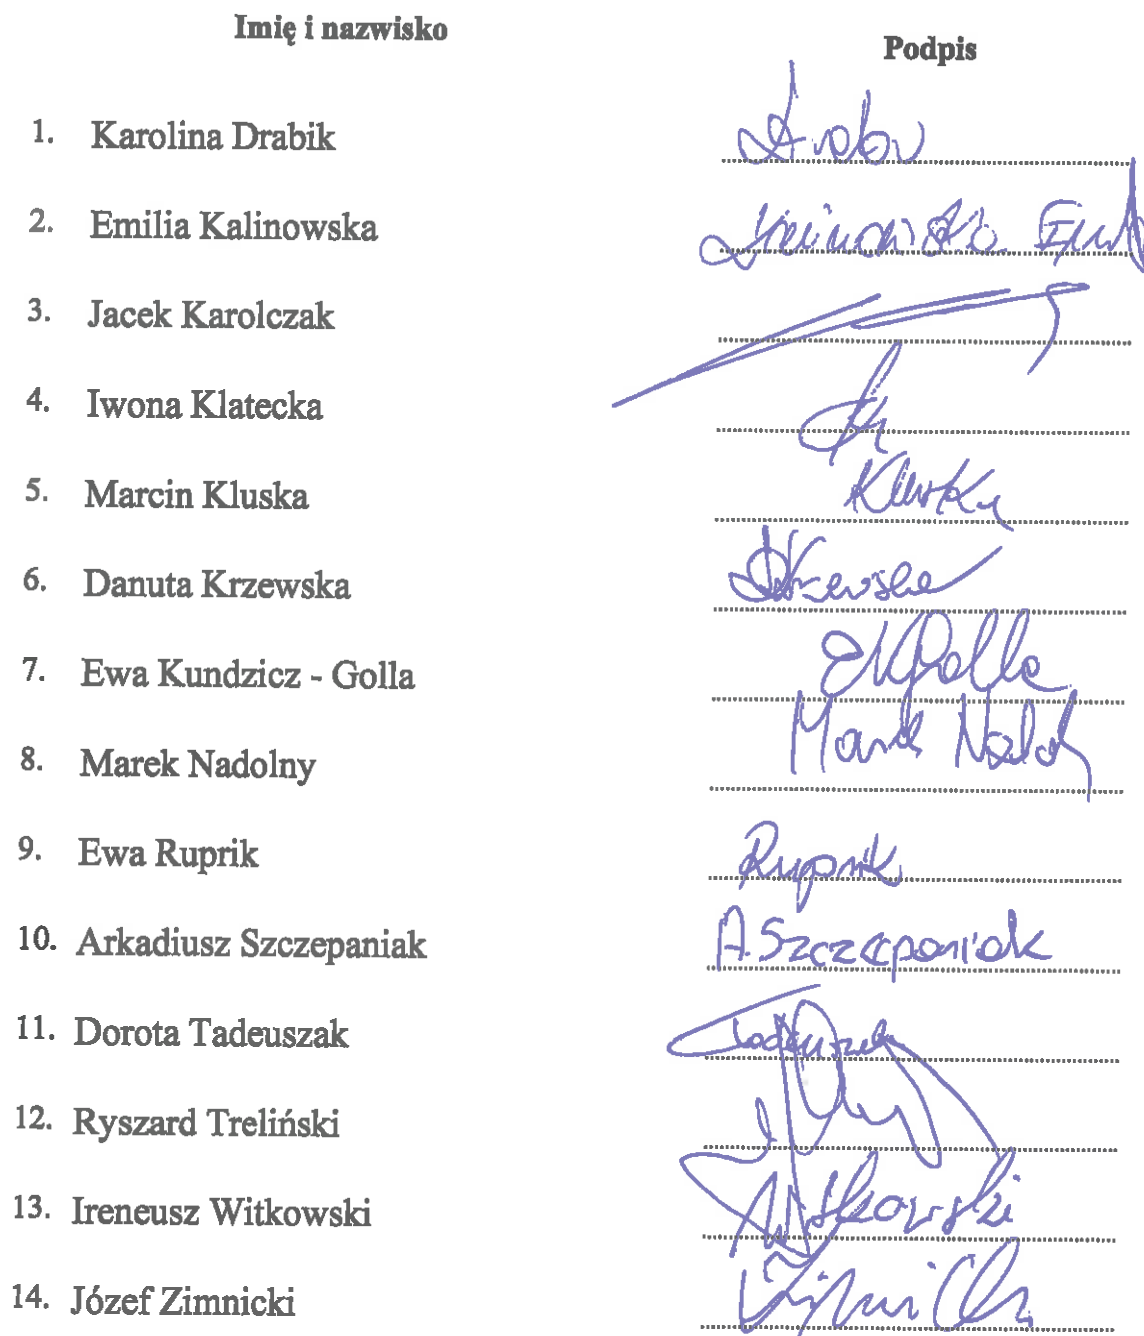 Imię i nazwisko
Podpis
1. Karolina Drabik
2. Emilia Kalinowska
3. Jacek Karolczak
4. Iwona Klatecka
5. Marcin Kluska Kluska
6. Danuta Krzewska
7. Ewa Kundzicz - Golla EKGolla
8. Marek Nadolny Marek
9. Ewa Ruprik Ruprik
10. Arkadiusz Szczepaniak A. Szczepaniak
11. Dorota Tadeuszak
12. Ryszard Treliński
13. Ireneusz Witkowski Witkowski
14. Józef Zimnicki